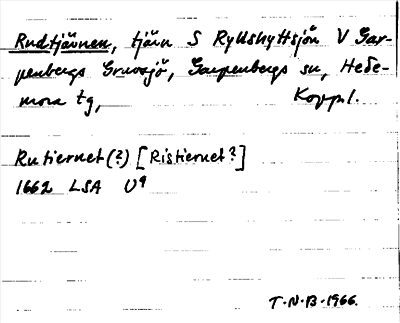 Rudtjärnen, tjärn S Ryllshyttsjön V Gar-
penbergs Gruvsjö, Garpenbergs sn, Hede-
mora tg, Kopp.l.
Rutiernet (?) [Ristiernet?]
1662 LSA U9
T.N.B. 1966.